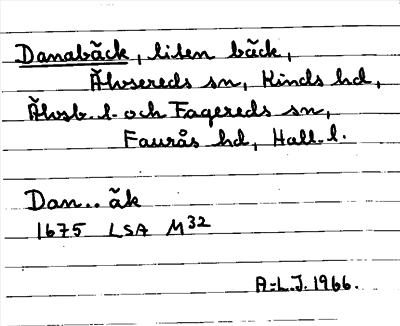 Danabäck, liten bäck,
Älvsereds sn, Kinds hd,
Älvsb. l. och Fagereds sn,
Faurås hd, Hall. l.
Dan.. äk
1675 LSA M32
A-L.J. 1966.